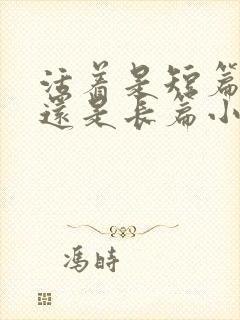 活着是短篇
還是長篇小
馮時